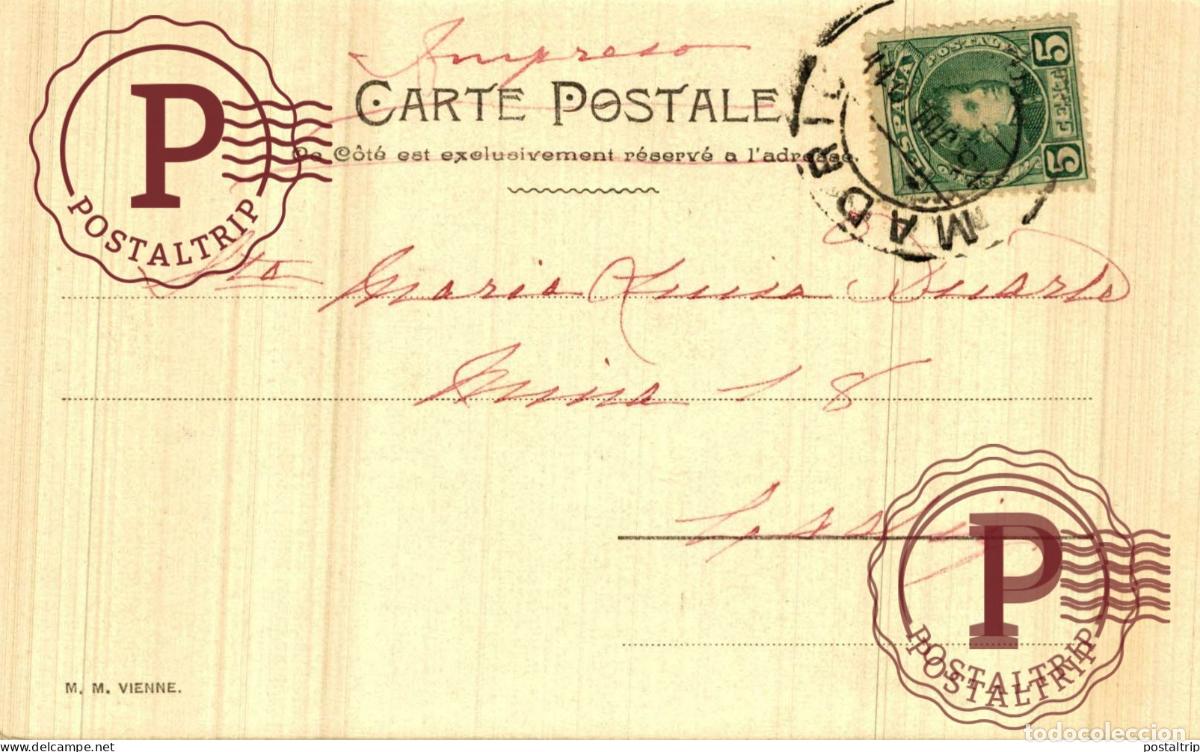 Impreso
CARTE POSTALE
Ce Côté est exclusivement réservé a l'adresse.
POSTALTRIP
ESPAÑA
POSTAL
5
5
MADRID
Sta Maria Luisa Duarte
Mina 18
M. M. VIENNE.
POSTALTRIP
POSTALTRIP
todocoleccion
www.delcampe.net
postaltrip